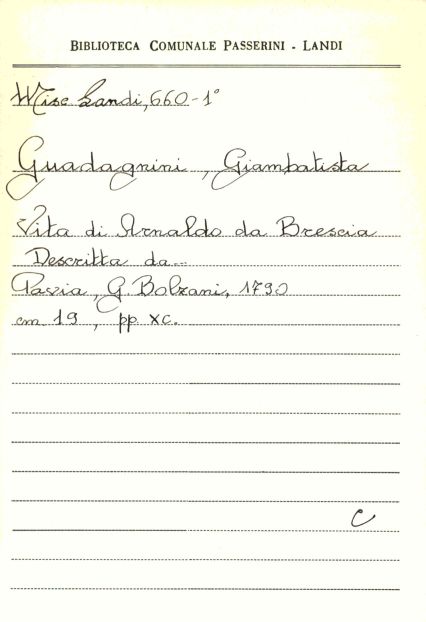 BIBLIOTECA COMUNALE PASSERINI - LANDI
Misc Landi, 660-1°
Guadagnini, Giambatista
Vita di Arnaldo da Brescia
Descritta da...
Pavia, G. Bolzani, 1790
cm 19, pp. XC.
C